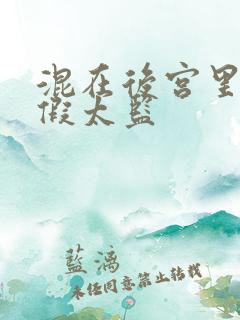 混在後宮里
假太藍
藍漓
未经同意禁止转载